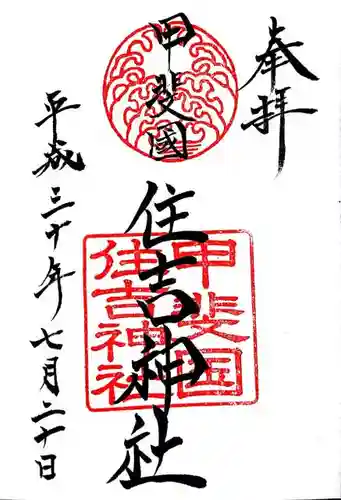 奉拝
甲斐國
住吉神社
甲斐国
住吉神社
平成三十年七月二十日